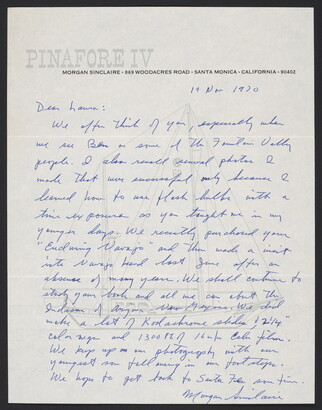 PINAFORE IV
MORGAN SINCLAIRE • 869 WOODACRES ROAD • SANTA MONICA • CALIFORNIA • 90402
19 Nov 1970
Dear Laura:
We often think of you, especially when
we see Ben or some of the Fountain Valley
people. I also recall several photos I
made that were successful only because I
learned how to use flash bulbs with a
time exposure as you taught me in my
younger days. We recently purchased your
"Enduring Navaho" and then made a visit
into Navajo land last June after an
absence of many years. We shall continue to
study your book and all we can about the
Indians of
make a lot of Kodachrome slides, 2¼"
color negs and 1300 ft of 16m/m Color film.
We keep up on our photography with our
youngest son following in our footsteps.
We hope to get back to Santa Fe some time.
Morgan Sinclaire